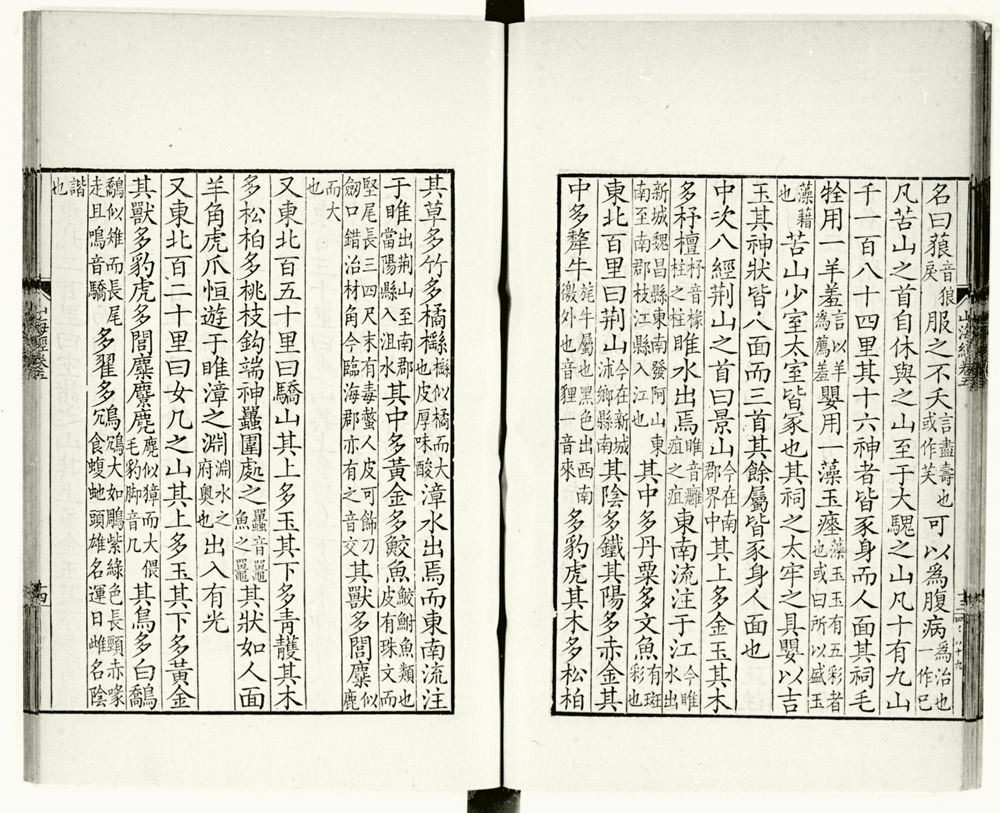 名曰蒗音狼戾服之不夭言盡壽也或作芺可以為腹病為治也一作已
凡苦山之首自休與之山至于大騩之山凡十有九山
千一百八十四里其十六神者皆豕身而人面其祠毛
牷用一羊羞言以羊為薦羞嬰用一藻玉瘞藻玉玉有五彩者也或曰所以盛玉
藻藉也苦山少室太室皆冢也其祠之太牢之具嬰以吉
玉其神狀皆人面而三首其餘屬皆豕身人面也
中次八經荆山之首曰景山今在南郡界中其上多金玉其木
多杼檀杼音椽柱之柱雎水出焉雎音癰疽之疽東南流注于江今雎水出
新城魏昌縣東南發阿山東南至南郡枝江縣入江也其中多丹粟多文魚有斑彩也
東北百里曰荆山今在新城沶鄉縣南其陰多鐵其陽多赤金其
中多犛牛旄牛屬也黑色出西南徼外也音貍一音來多豹虎其木多松柏
其草多竹多橘櫾櫾似橘而大也皮厚味酸漳水出焉而東南流注
于雎出荆山至南郡當陽縣入沮水其中多黃金多鮫魚鮫鮒魚類也皮有珠文而
堅尾長三四尺末有毒螫人皮可飾刀劒口錯治材角今臨海郡亦有之音交其獸多閭麋似鹿
而大也
又東北百五十里曰驕山其上多玉其下多青雘其木
多松柏多桃枝鈎端神䰠圍處之䰠音鼉魚之鼉其狀如人面
羊角虎爪恒遊于雎漳之淵淵水之府奧也出入有光
又東北百二十里曰女几之山其上多玉其下多黃金
其獸多豹虎多閭麋麖麂麂似獐而大偎毛豹脚音几其鳥多白鷮
鷮似雉而長尾走且鳴音驕多翟多鴆鴆大如鵰紫綠色長頸赤喙食蝮虵頭雄名運日雌名陰
諧也
山海經卷五